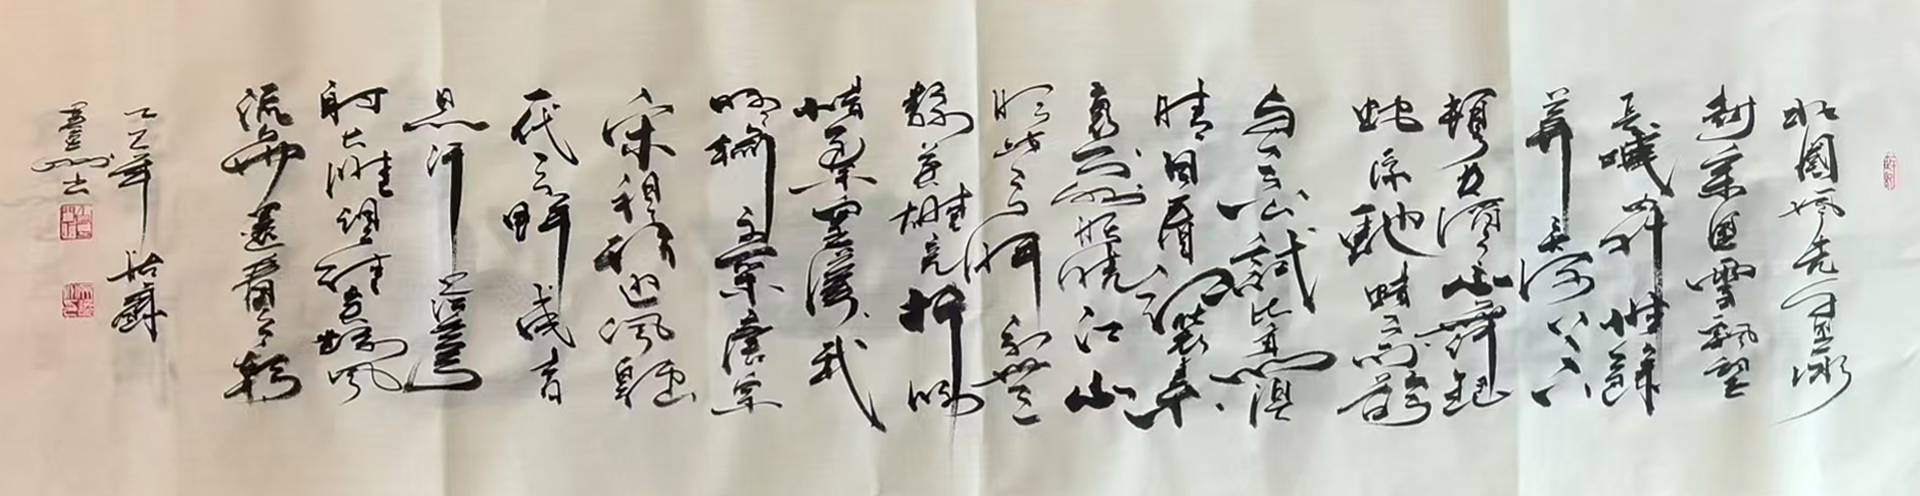 北國風光千里冰
封萬里雪飄望
長城內外惟餘
莽莽大河上下
頓失滔滔山舞銀
蛇原馳蠟象欲
與天公試比高須
晴日看紅裝素
裹分外妖嬈江山
如此多嬌引無
數英雄競折腰
惜秦皇漢武
略輸文采唐宗
宋祖稍遜風騷
一代天驕成吉
思汗只識彎弓
射大雕俱往矣數風
流人物還看今朝
乙巳年